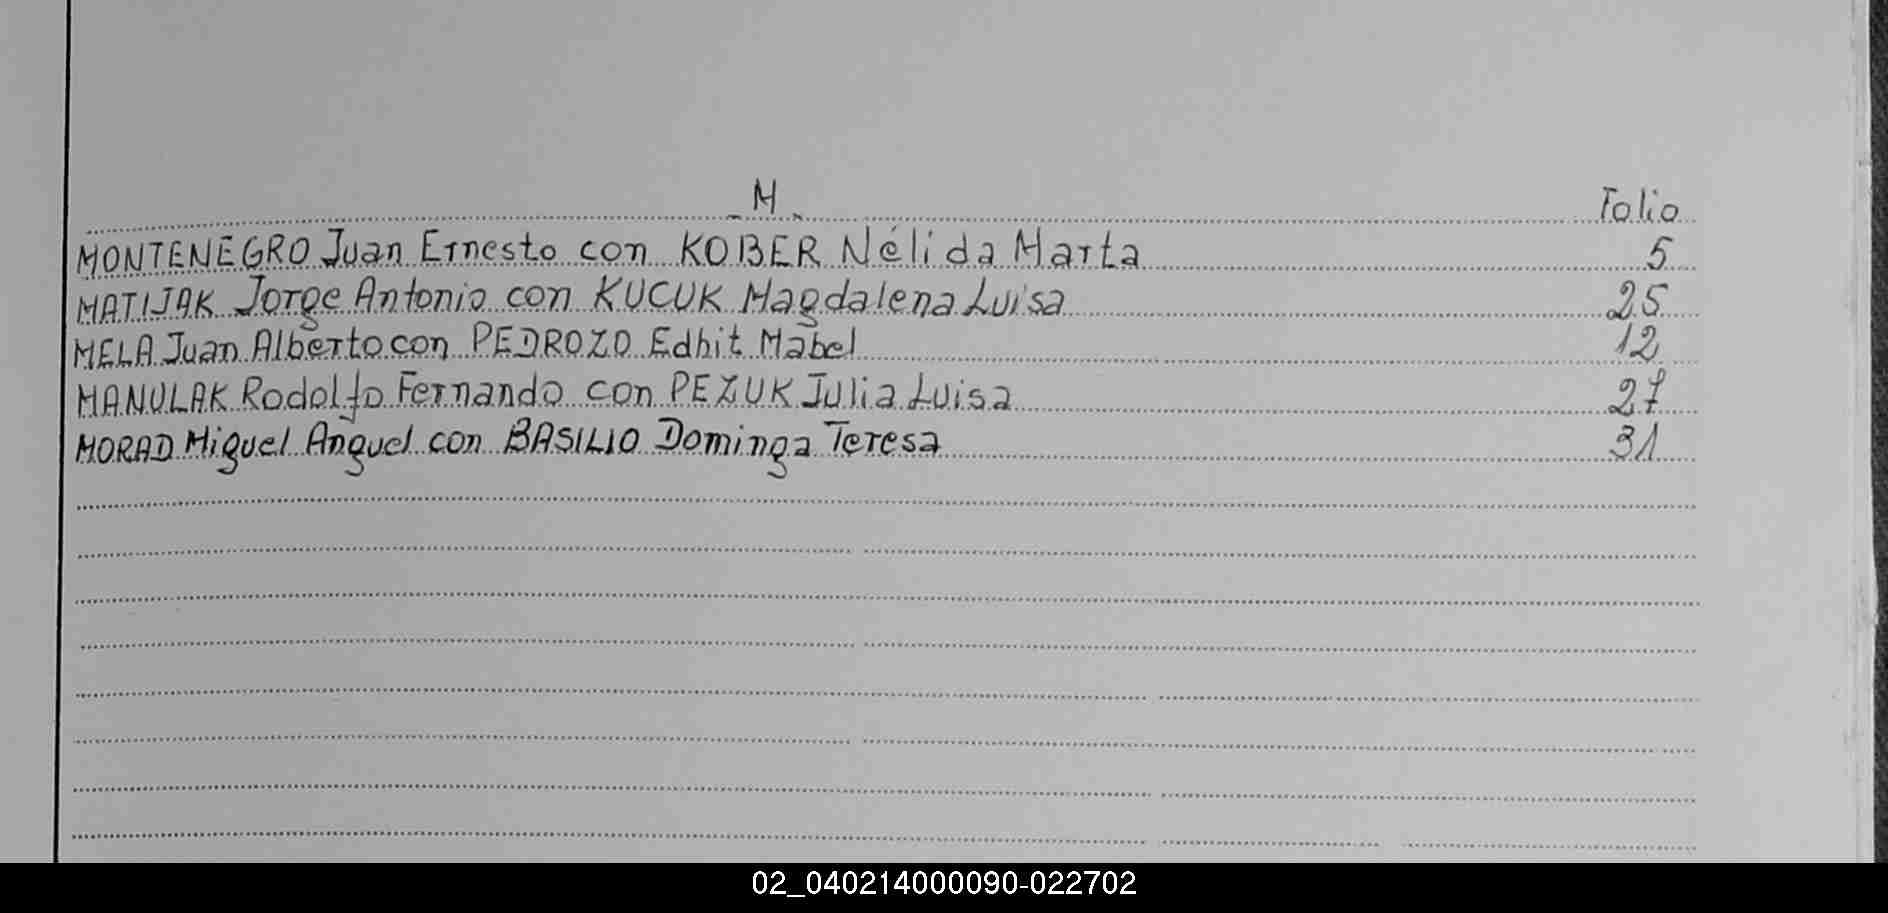 M
Folio
MONTENEGRO Juan Ernesto con KOBER Nélida Marta 5
MATIJAK Jorge Antonio con KUCUK Magdalena Luisa 25
MELA Juan Alberto con PEDROZO Edhit Mabel 12
MANULAK Rodolfo Fernando con PEZUK Julia Luisa 27
MORAD Miguel Anguel con BASILIO Dominga Teresa 31
02_040214000090-022702